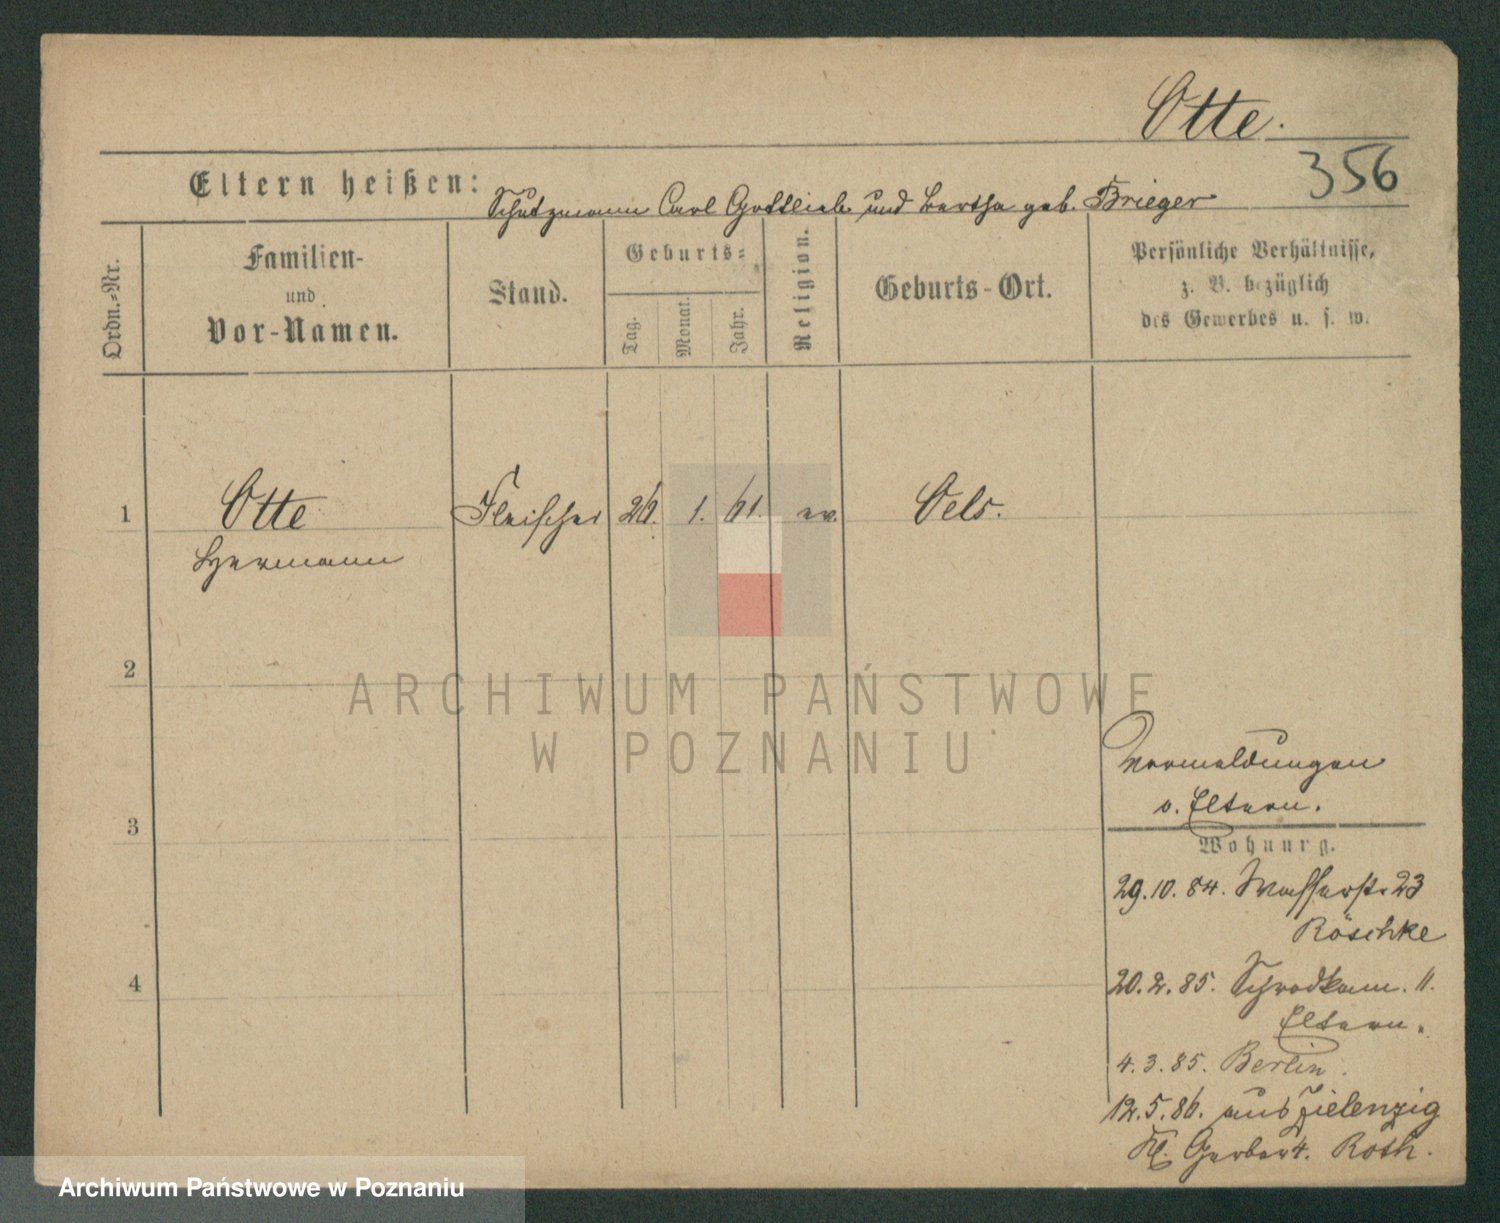 Otte.
356
Eltern heißen: Schutzmann Carl Gottlieb und Bertha geb. Brieger
Ordn.-Nr.
Familien-
und
Vor-Namen.
Stand.
Geburts-
Tag.
Monat.
Jahr.
Religion.
Geburts-Ort.
Persönliche Verhältnisse,
z. B. bezüglich
des Gewerbes u. s. w.
1 Otte Fleischer 26. 1. 61. ev. Oels.
Hermann
2
ARCHIWUM PAŃSTWOWE
W POZNANIU
Vormeldungen
v. Eltern.
3
Wohnung.
29.10.84. Wasserstr. 23
Röschke
4
20.2.85. 11.
Eltern.
4.3.85. Berlin.
12.5.86. aus Zielenzig
Kl. Gerber 4. Roth.
Archiwum Państwowe w Poznaniu